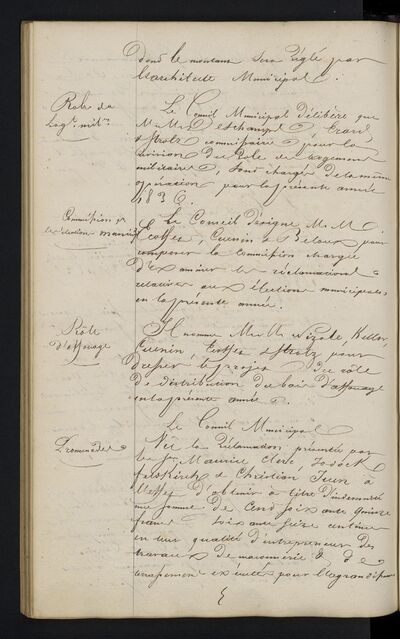 dont le montant sera réglé par
l'architecte Municipal.
Role du
log.t mil.re
Le Conseil Municipal Délibère que
M.M. Erard,
& Stolz commissaires pour la
révision du Role de logement
militaire, sont chargés de la même
opération pour la présente année
1836.
Commission p.r
les élection municip
Le Conseil désigne M.M.
Ecoffet, Cuenin & Beloux pour
composer la Commission chargée
d'examiner les réclamations
relatives aux élections municipales
en la présente année.
Rôle
d'affouage
Il nomme M.M. Nizole, Keller,
Cuenin, Ecoffet & Stolz, pour
dresser le projet du rôle
de distribution du bois d'affouage
en la présente année.
Promenades
Le Conseil Municipal
Vû la réclamation présentée par
les S.rs Maurice Clerc, Jodock
& Christian Ienn à
l'effet d'obtenir à titre d'indemnité
une somme de Cent soixante quinze
francs soixante seize centimes
en leur qualité d'entrepreneur des
travaux de maçonnerie & de
terrassement exécutés pour l'agrandissem